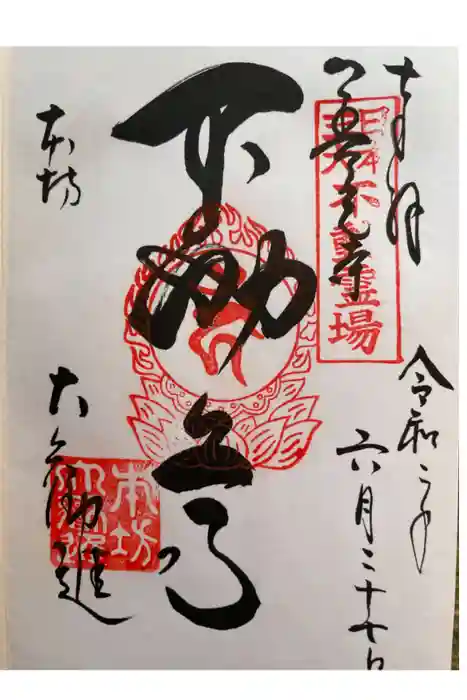 奉拝
令和二年
六月二十七日
善光寺
不動霊場
不動尊
本坊
大勧進
本坊